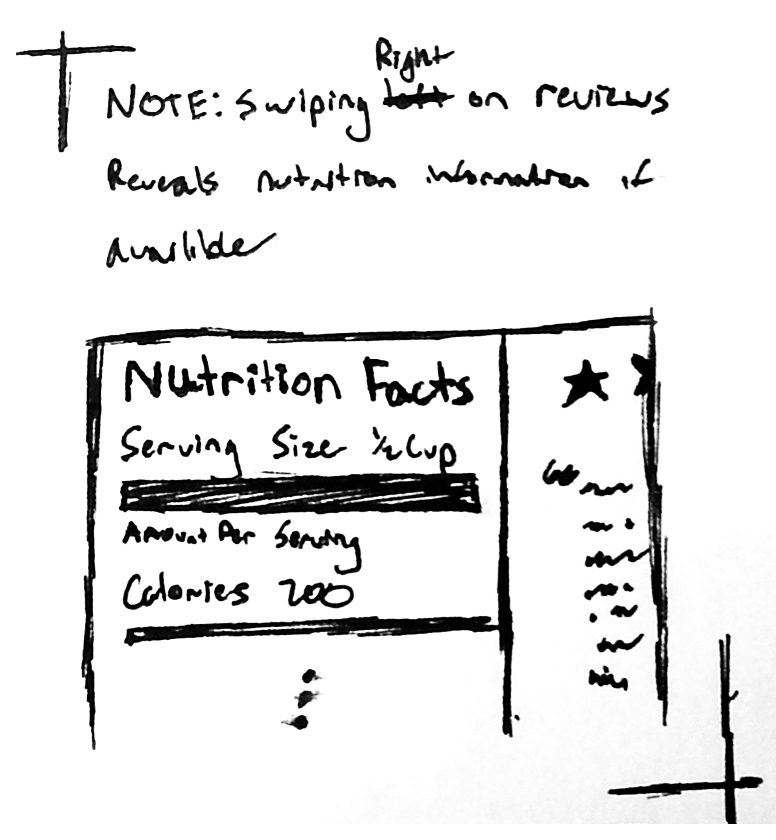 NOTE: Swiping Right on reviews
Reveals nutrition information if
availible
Nutrition Facts
Serving Size ½ Cup
Amount Per Serving
Calories 200